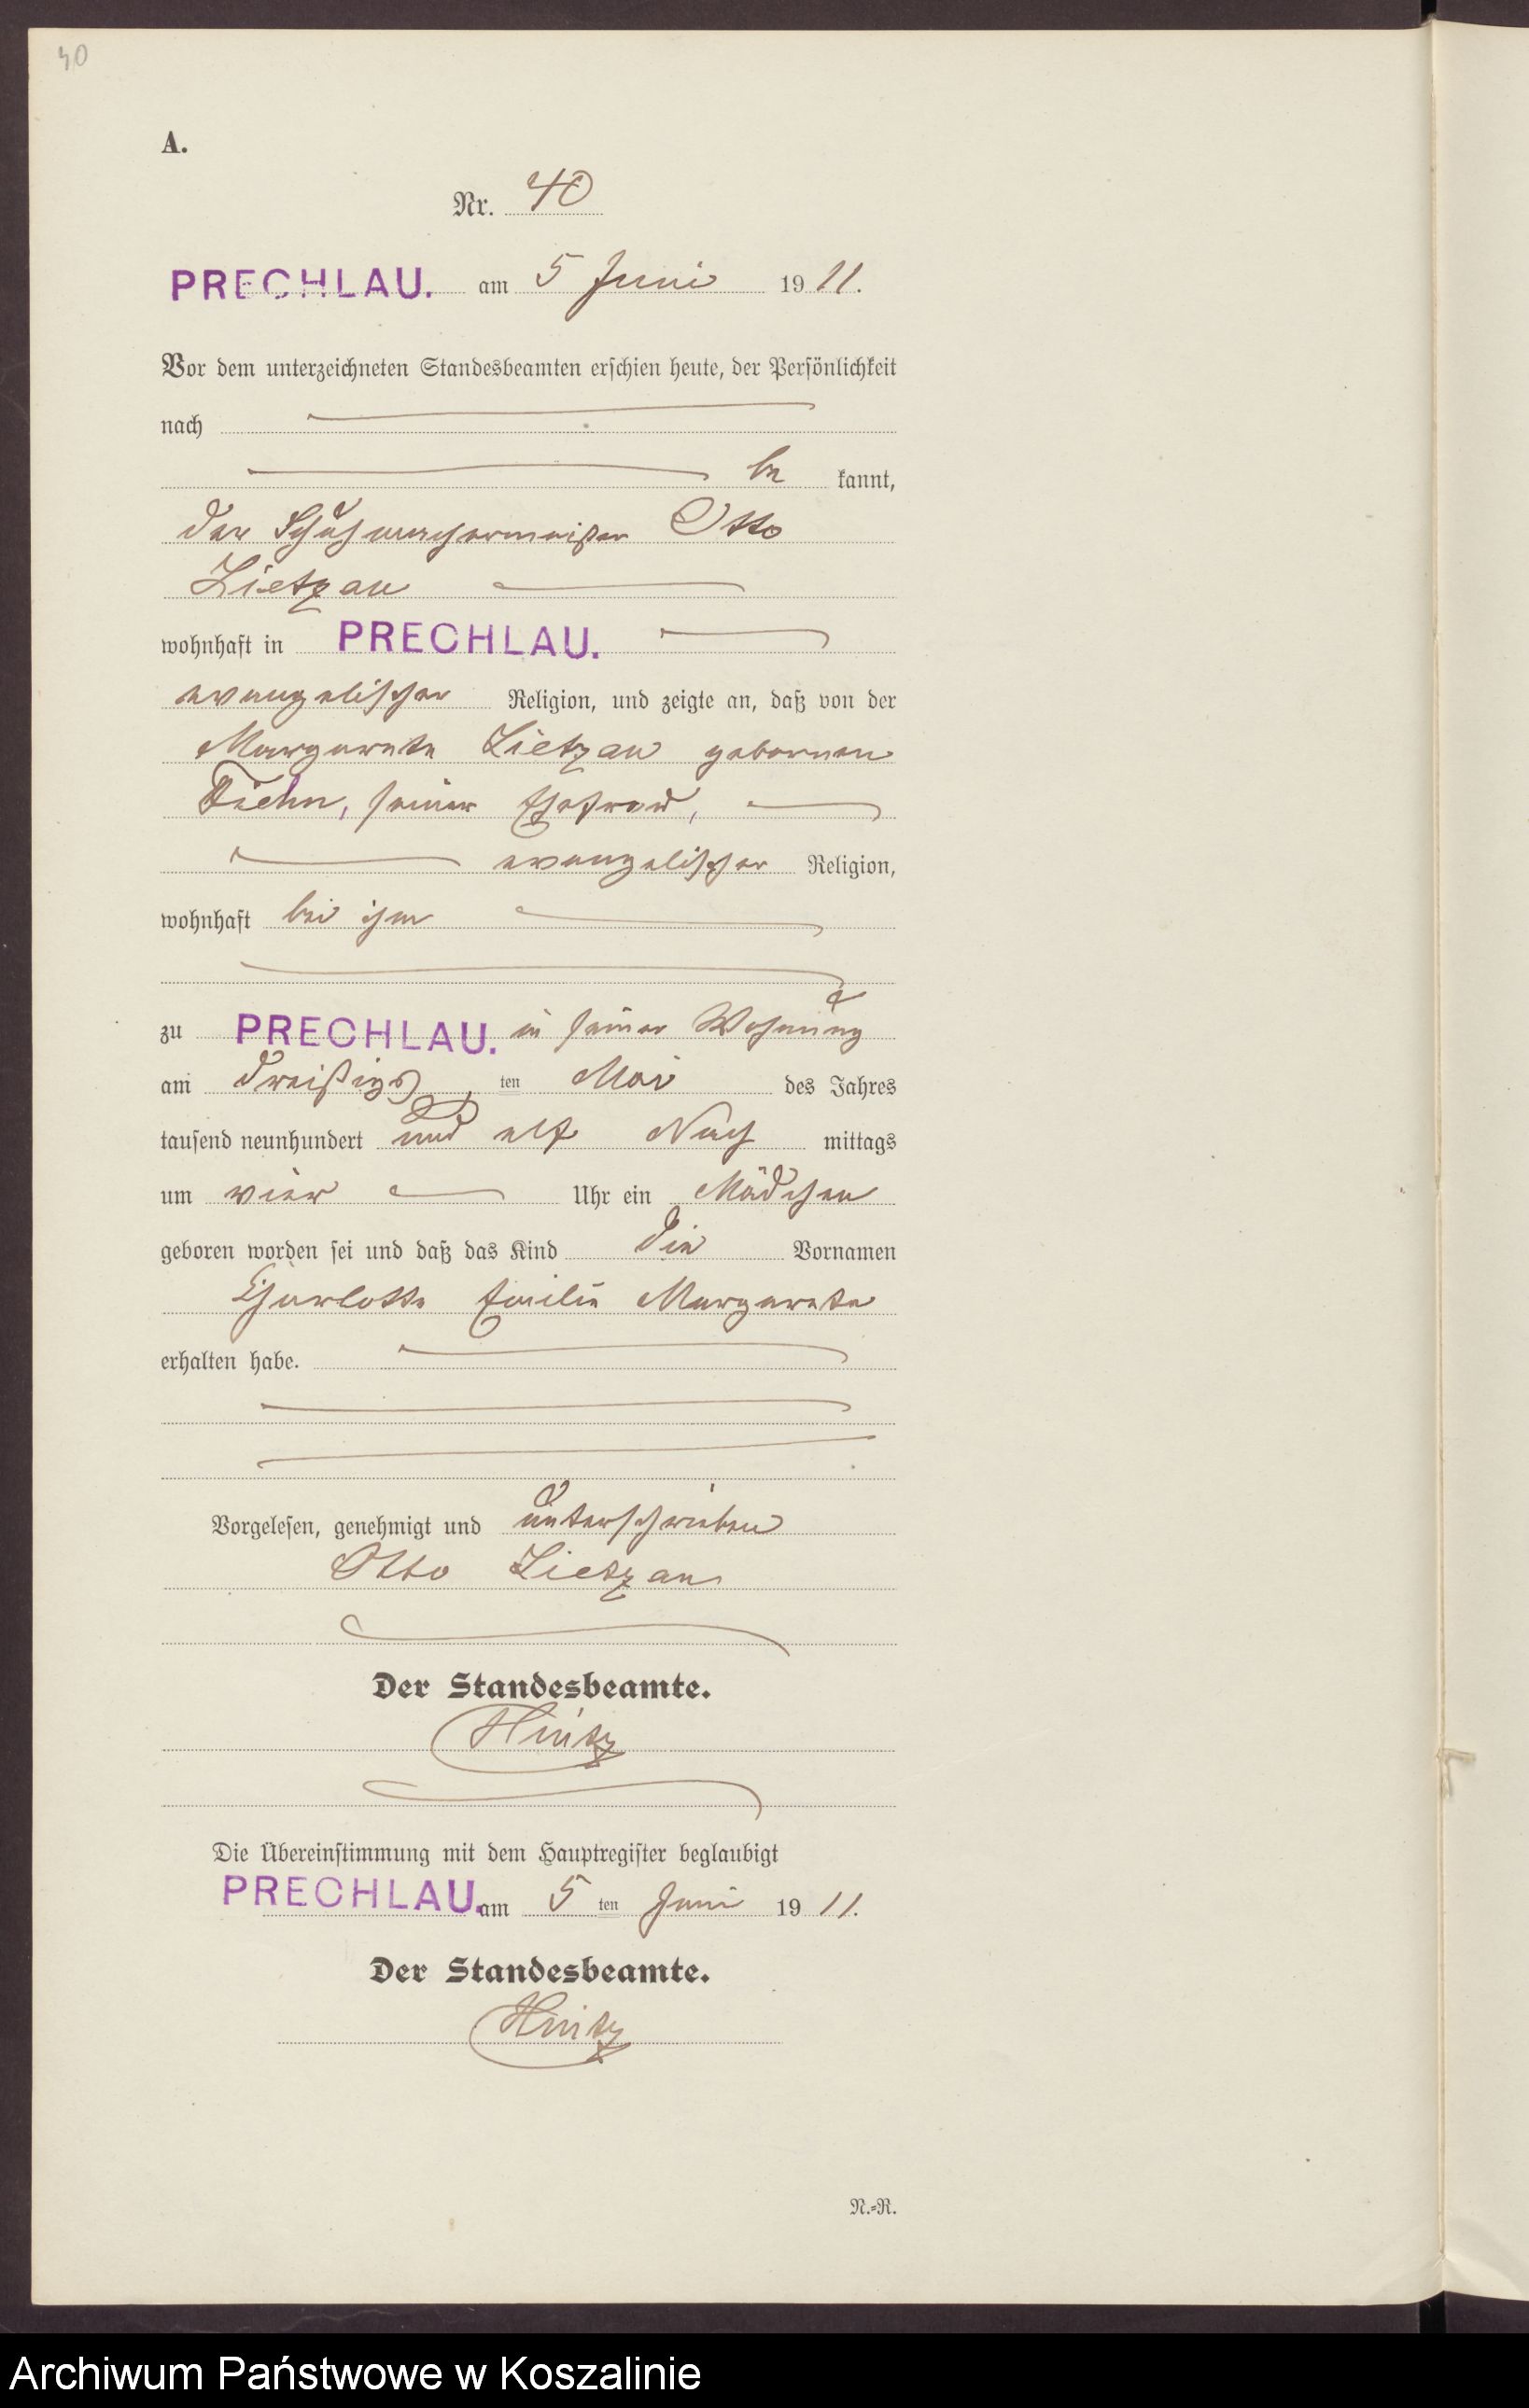 40
A.
Nr. 40
PRECHLAU. am 5 Juni 1911.
Vor dem unterzeichneten Standesbeamten erschien heute, der Persönlichkeit
nach
be kannt,
der Schuhmachermeister Otto
Lietzau
wohnhaft in PRECHLAU.
evangelischer Religion, und zeigte an, daß von der
Margarete Lietzau gebornen
seiner Ehefrau,
evangelischer Religion,
wohnhaft bei ihm
zu PRECHLAU. in seiner Wohnung
am dreißigs ten Mai des Jahres
tausend neunhundert und elf Nach mittags
um vier Uhr ein Mädchen
geboren worden sei und daß das Kind die Vornamen
Charlotte Emilie Margarete
erhalten habe.
Vorgelesen, genehmigt und unterschrieben
Otto Lietzau
Der Standesbeamte.
Hintz
Die Übereinstimmung mit dem Hauptregister beglaubigt
PRECHLAU. am 5 ten Juni 1911.
Der Standesbeamte.
Hintz
N.=R.
Archiwum Państwowe w Koszalinie